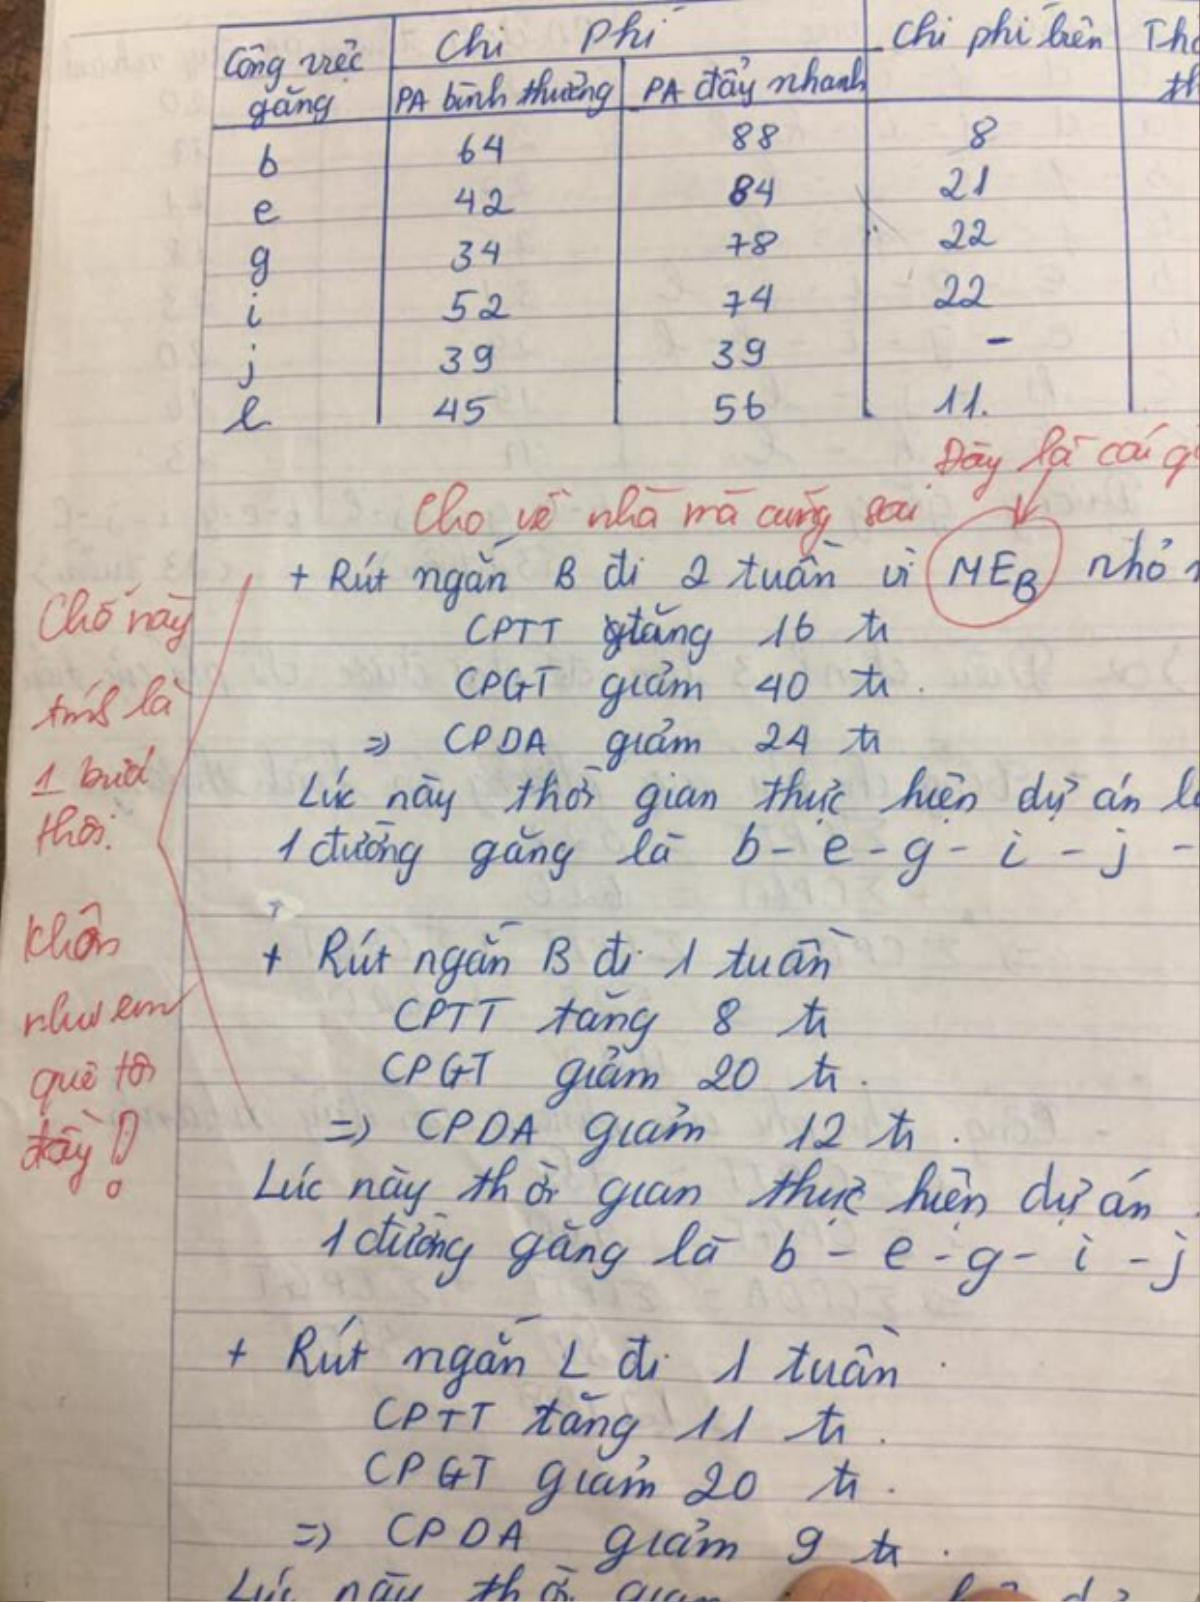 Công việc găng | Chi Phí | Chi phí biên | Thờ
PA bình thường | PA đẩy nhanh | th
b 64 88 8
e 42 84 21
g 34 78 22
i 52 74 22
j 39 39 -
l 45 56 11.
Đây là cái g
Cho về nhà mà cũng sai
+ Rút ngắn B đi 2 tuần vì MEB nhỏ
CPTT tăng 16 tr
CPGT giảm 40 tr.
=> CPDA giảm 24 tr
Lúc này thời gian thực hiện dự án
1 đường găng là b - e - g - i - j -
Chỗ này
tính là
1 bước
thôi.
Khôn
như em
quê tôi
đầy!
+ Rút ngắn B đi 1 tuần
CPTT tăng 8 tr
CPGT giảm 20 tr.
=> CPDA giảm 12 tr.
Lúc này thời gian thực hiện dự án
1 đường găng là b - e - g - i - j
+ Rút ngắn L đi 1 tuần.
CPTT tăng 11 tr.
CPGT giảm 20 tr.
=> CPDA giảm 9 tr.
Lúc này thời gian